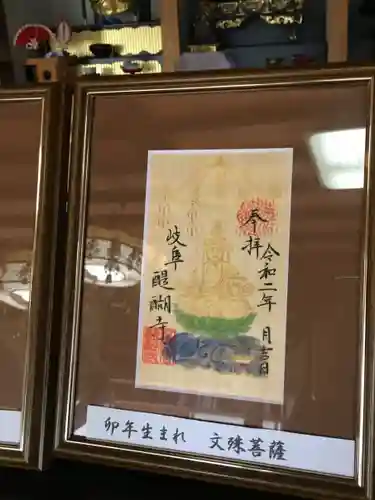 奉拝
令和二年 月吉日
岐阜 醍醐寺
卯年生まれ 文殊菩薩